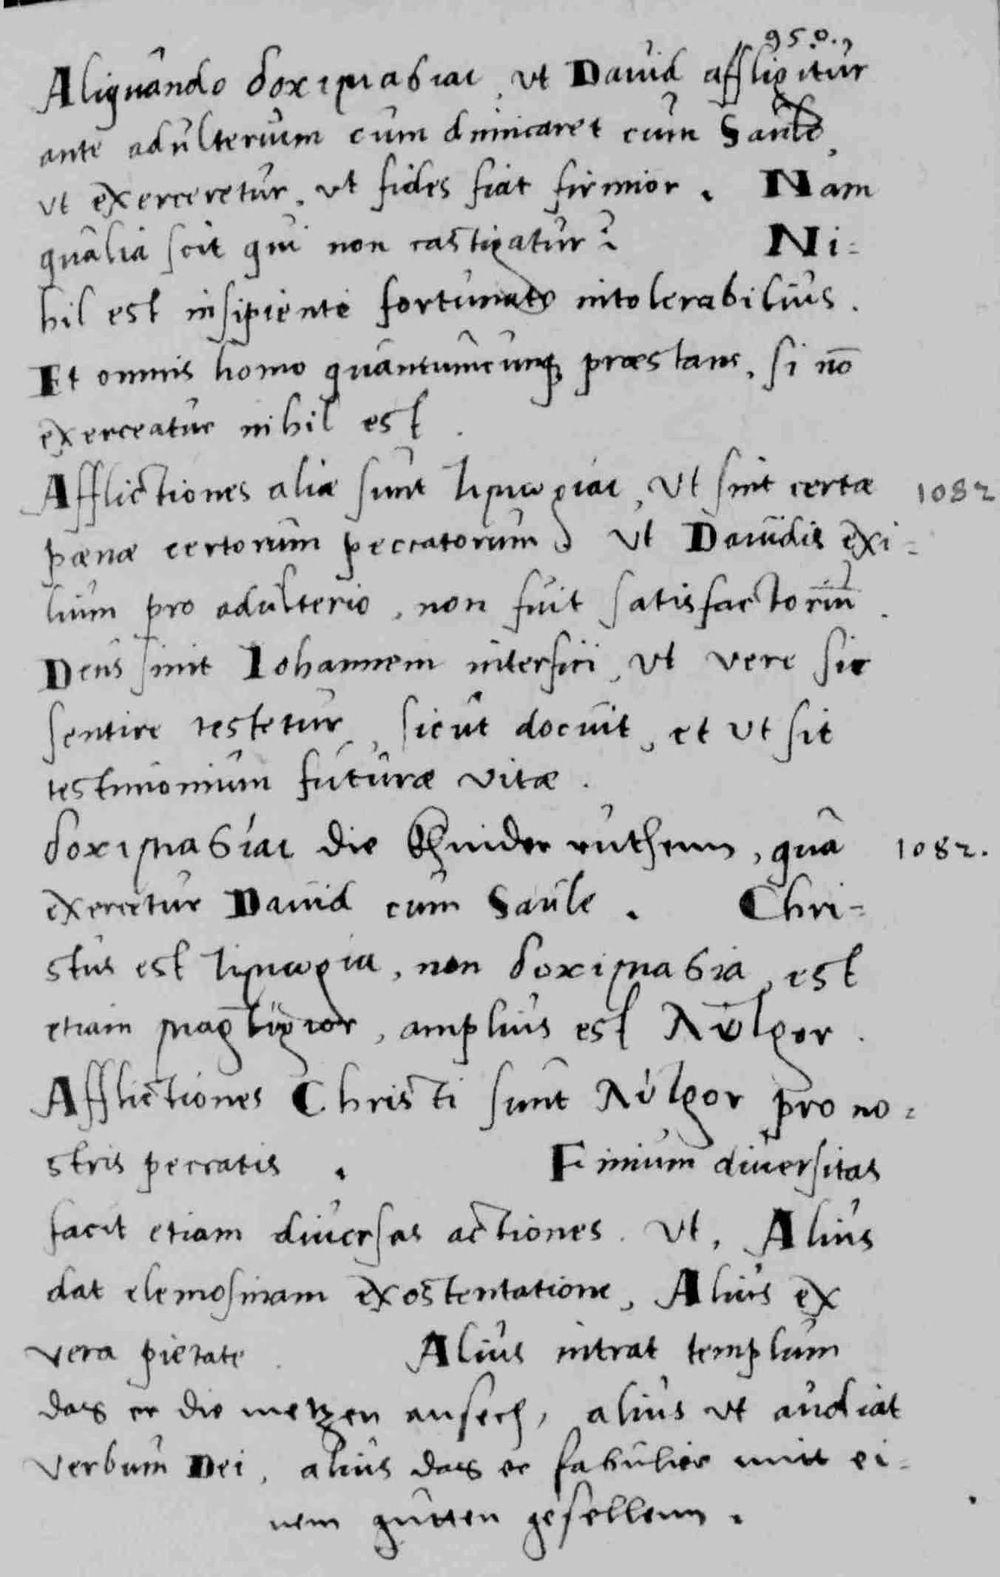 950.
Aliquando δοκιμασίαι, ut Dauid affligitur
ante adulterium cum dimicaret cum Saule,
ut exerceretur, ut fides fiat firmior. Nam
qualia scit qui non castigatur? Ni=
hil est insipiente fortunato intolerabilius.
Et omnis homo quantumcunq; præstans, si nō
exerceatur nihil est.
Afflictiones aliæ sunt τιμωρίαι, Ut sint certæ 1082
pænæ certorum peccatorum, Ut Dauidis exi=
lium pro adulterio, non fuit satisfactoriū.
Deus sinit Iohannem interfici, ut vere sic
sentire testetur, sicut docuit, et ut sit
testimonium futuræ vitæ.
δοκιμασίαι die Khinder ruthenn, qua 1082.
exercetur Dauid cum Saule. Chri=
stus est τιμωρία, non δοκιμασία, est
etiam μαρτύριον, amplius est λύτρον.
Afflictiones Christi sunt λύτρον pro no=
stris peccatis. Finium diuersitas
facit etiam diuersas actiones. Ut, Alius
dat elemosinam ex ostentatione, Alius ex
vera pietate. Alius intrat templum
das er die metzen ansech, alius ut audiat
verbum Dei, alius das er fabulier mitt ei=
nem gutten gesellenn.